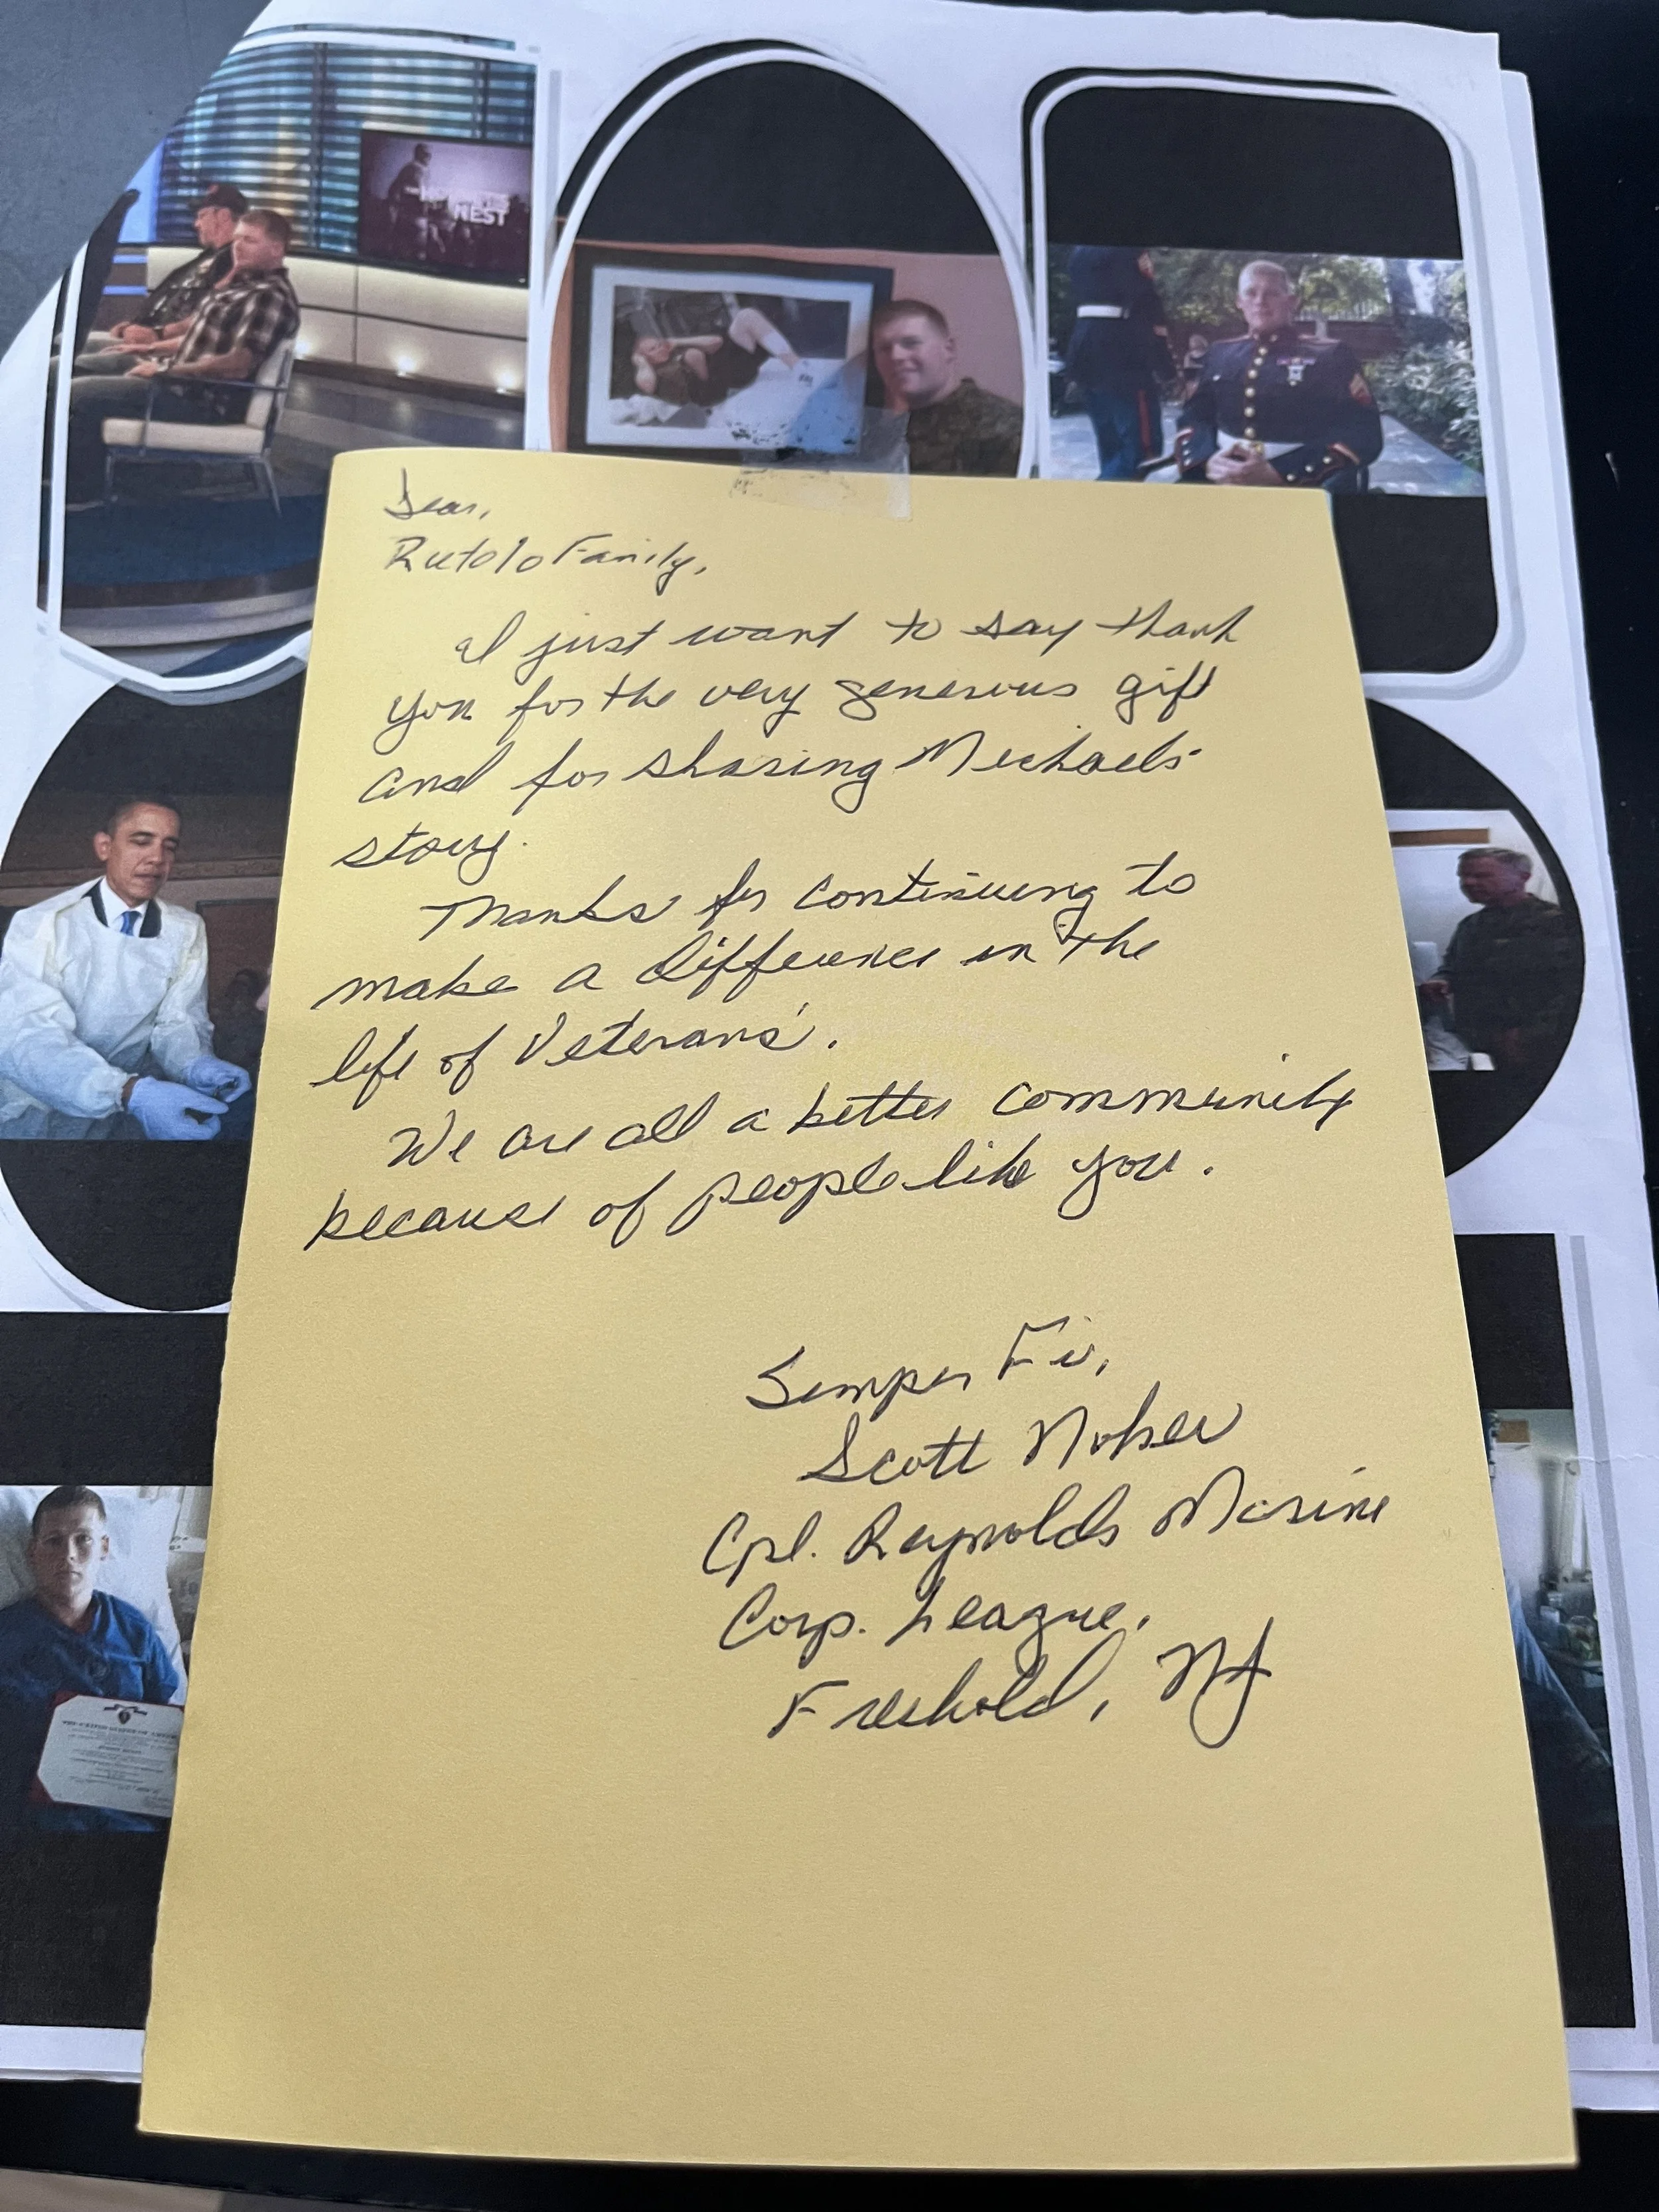 THE HORNET'S NEST
Dear,
Rutolo Family,
I just want to say thank
you for the very generous gift
and for sharing Michaels
story.
Thanks for continuing to
make a difference in the
life of Veterans'.
We are all a better community
because of people like you.
Semper Fi,
Scott
Cpl. Reynolds Marine
Corp. League,
Freehold, NJ
THE UNITED STATES OF AMERICA